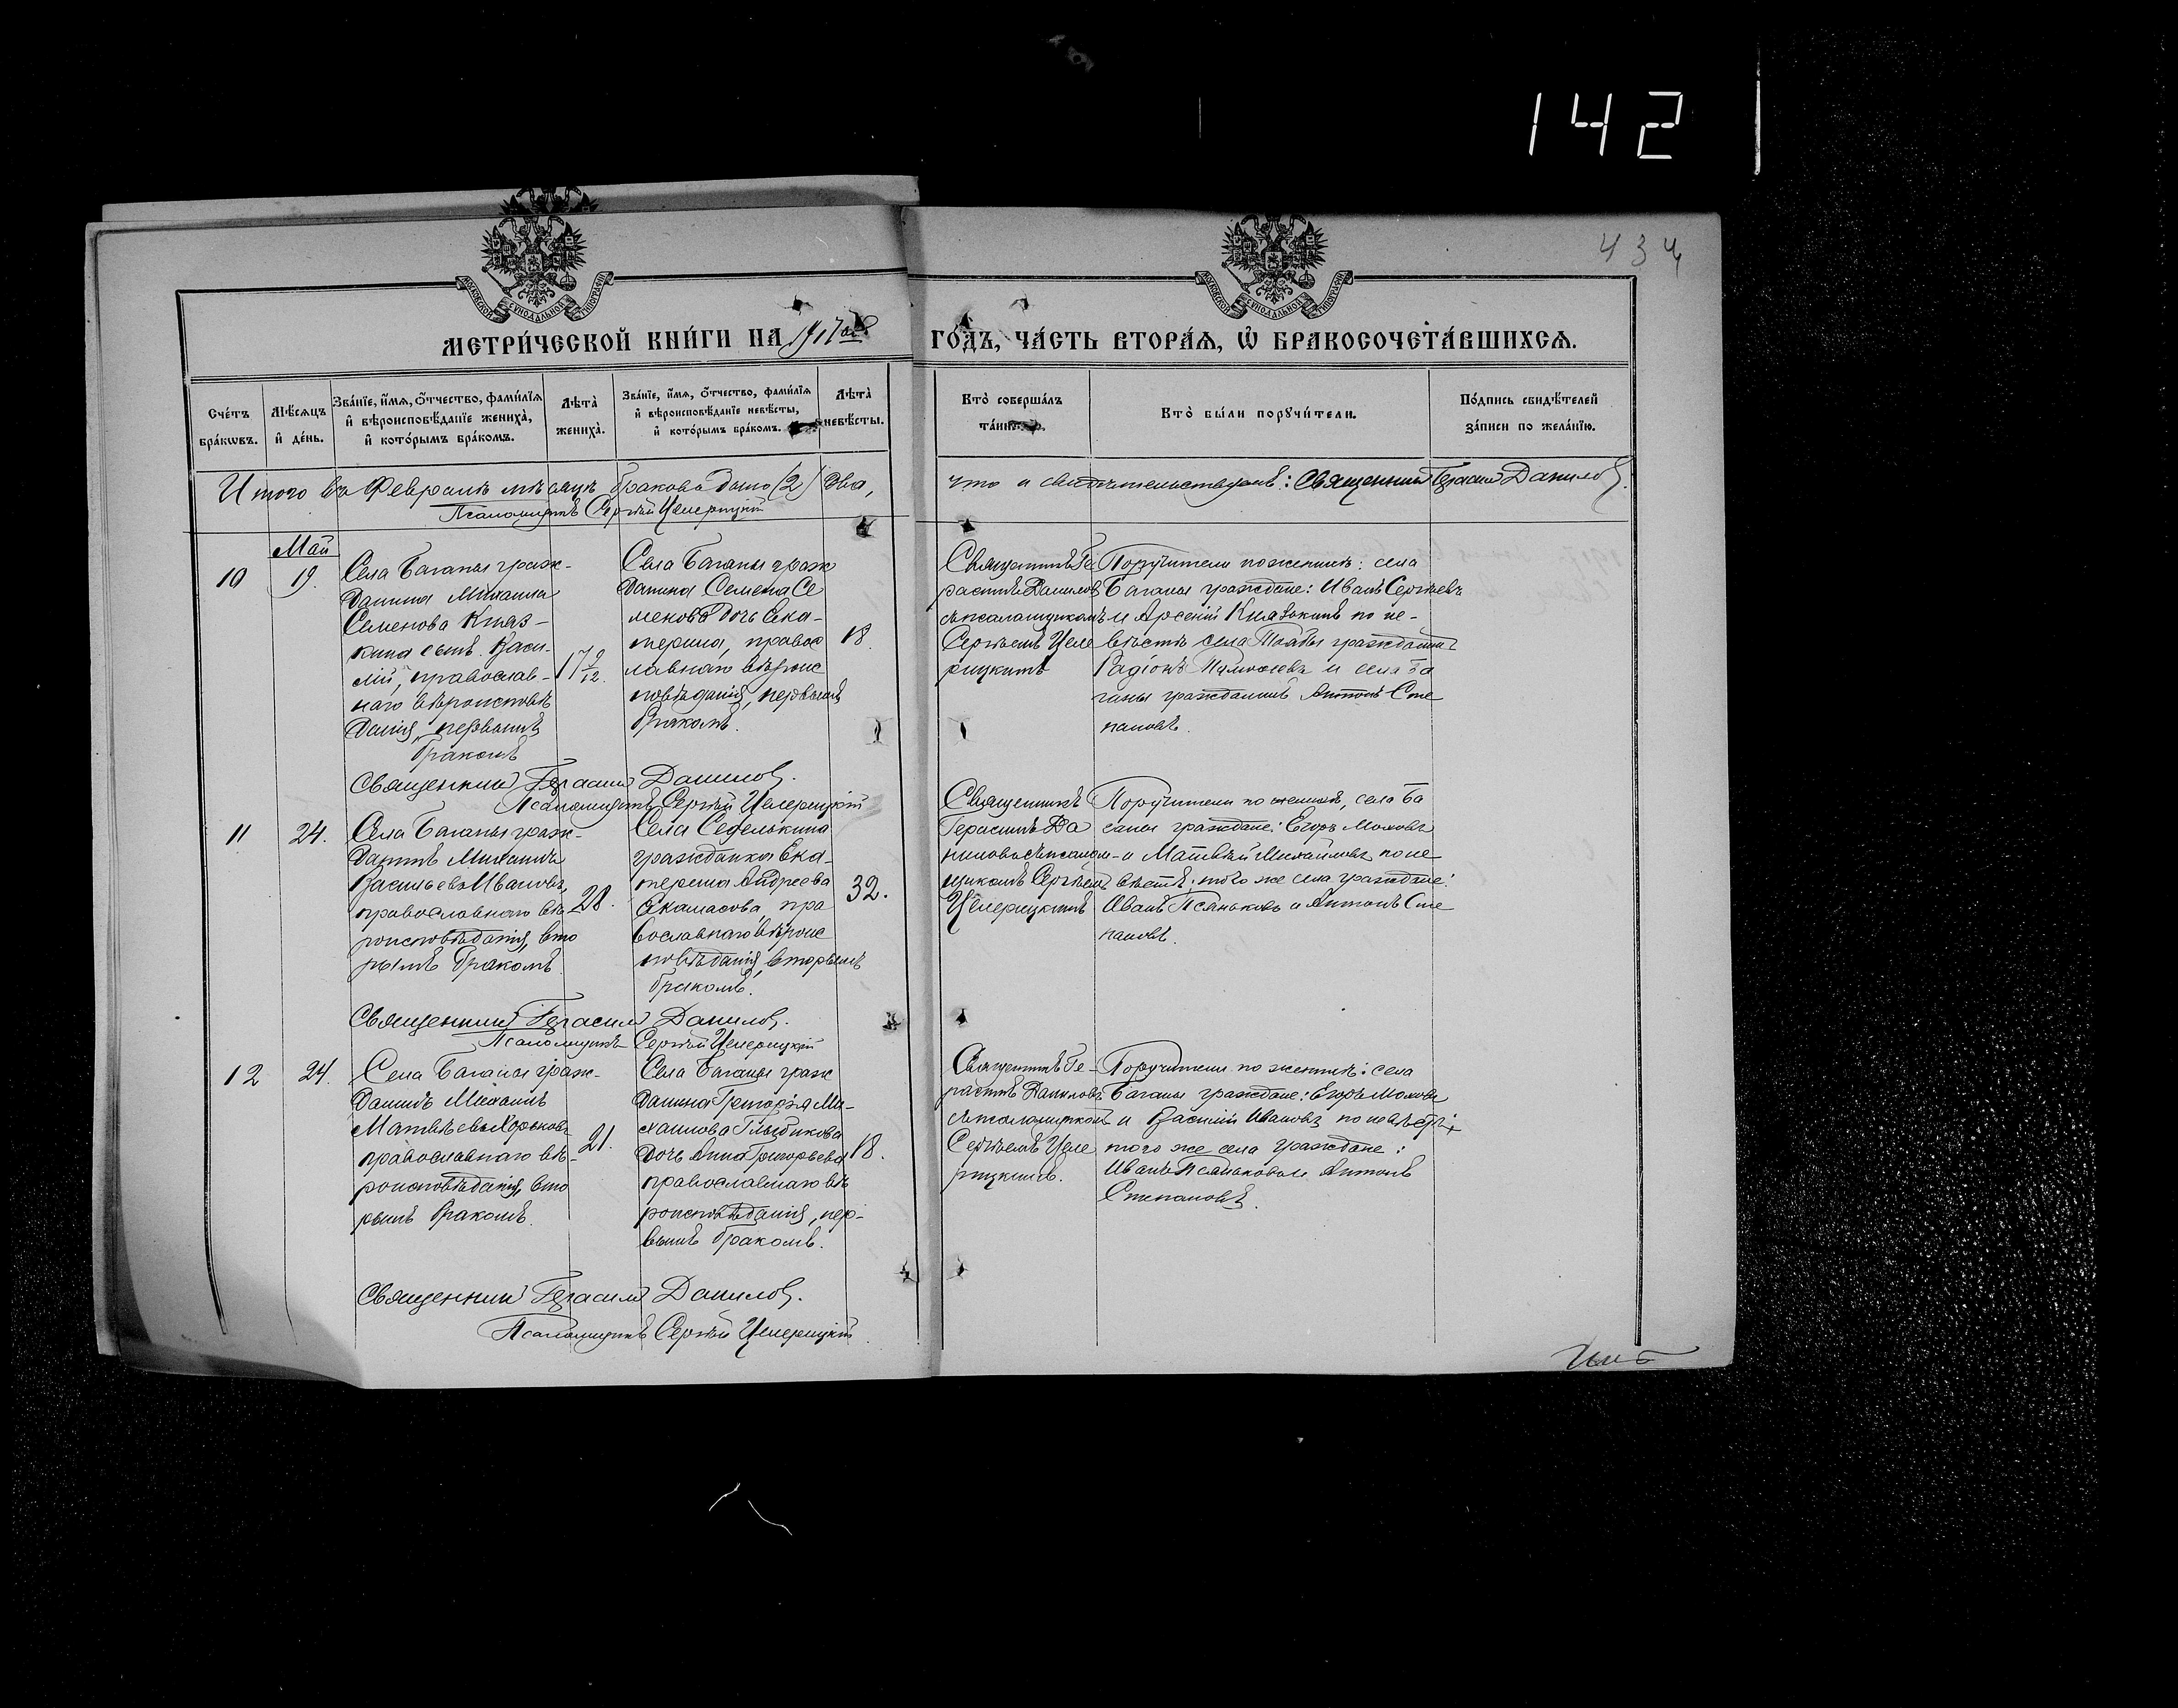 142
434
МЕТРИ́ЧЕСКОЙ КНИ́ГИ НА 1917 ой
ГО́ДЪ, ЧА́СТЬ ВТОРА́Ѧ, Ѡ҆ БРАКОСОЧЕТА́ВШИХСѦ.
Сче́тъ бра́кѡвъ.
Мѣ́сяцъ и҆ де́нь.
Зва́нїе, и҆́мѧ, ѻ҆́тчество, фамѝлїѧ и҆ вѣроисповѣ́данїе жениха̀, и҆ кото́рымъ бра́комъ.
Лѣта̀ жениха̀.
Зва́нїе, и҆́мѧ, ѻ҆́тчество, фамѝлїѧ и҆ вѣроисповѣ́данїе невѣ́сты, и҆ кото́рымъ бра́комъ.
Лѣта̀ невѣ́сты.
Кто̀ соверша́лъ
Кто̀ бы́ли порꙋчи́тели.
По́дпись свидѣ́телей за́писи по жела́нїю.
Итого въ Февралѣ мѣсяцѣ браковъ было (2) два,
что и свидѣтельствуемъ: Священникъ Герасим Данилов.
Псаломщикъ Сергѣй Целерицкій
Май
10
19.
Села Баганы граж-
данина Михаила
Семенова Княз-
кина сынъ Васи-
лій, православ-
наго вѣроисповѣ
данія, первымъ
бракомъ
17 9/12.
Села Баганы граж
данина Семена Се
менова дочь Ека-
терина, правос
лавнаго вѣроис
повѣданія, первымъ
бракомъ.
18.
Священникъ Ге
расимъ Данилов
съ псаломщикомъ
Сергѣемъ Целе
рицкимъ
Поручители по женихѣ: села
Баганы граждане: Иванъ Сергѣевъ
и Арсеній Князькинъ по не-
вѣстѣ села граждани
Радіонъ Тимофеевъ и села Ба
ганы гражданинъ Антонъ Сте
пановъ.
Священник Герасим Данилов.
Псаломщикъ Сергѣй Целерицкій
11
24.
Села Баганы граж-
данинъ Михаилъ
Васильевъ Ивановъ,
православнаго вѣ
роисповѣданія, вто
рымъ бракомъ.
28.
Села Седелькина
гражданка Ека-
терина Андреева
пра
вославнаго вѣроис
повѣданія, вторымъ
бракомъ.
32.
Священникъ
Герасимъ Да
ниловъ съ псалом-
щикомъ Сергѣемъ
Целерицкимъ
Поручители по женихѣ, села Ба
ганы граждане: Егоръ Моховъ
и Матвѣй Михайловъ по не
вѣстѣ: того же села граждане:
Иванъ Псяньковъ и Антонъ Сте
пановъ.
Священник Герасим Данилов.
Псаломщикъ Сергѣй Целерицкій
12
24.
Села Баганы граж-
данинъ Михаилъ
Матвѣевъ Хорьковъ
православнаго вѣ-
роисповѣданія, вто
рымъ бракомъ.
21.
Села Баганы граж
данина Григорія Ми-
хаилова Глыбикова
дочь Анна Григорьева
православнаго вѣ
роисповѣданія, пер-
вымъ бракомъ.
18.
Священникъ Ге-
расимъ Даниловъ
съ псаломщикомъ
Сергѣемъ Целе
рицкимъ.
Поручители по женихѣ: села
Баганы граждане: Егоръ Моховъ
и Василій Ивановъ по невѣстѣ:
того же села граждане:
Иванъ Псяньковъ и Антонъ
Степановъ.
Священник Герасим Данилов.
Псаломщикъ Сергѣй Целерицкій